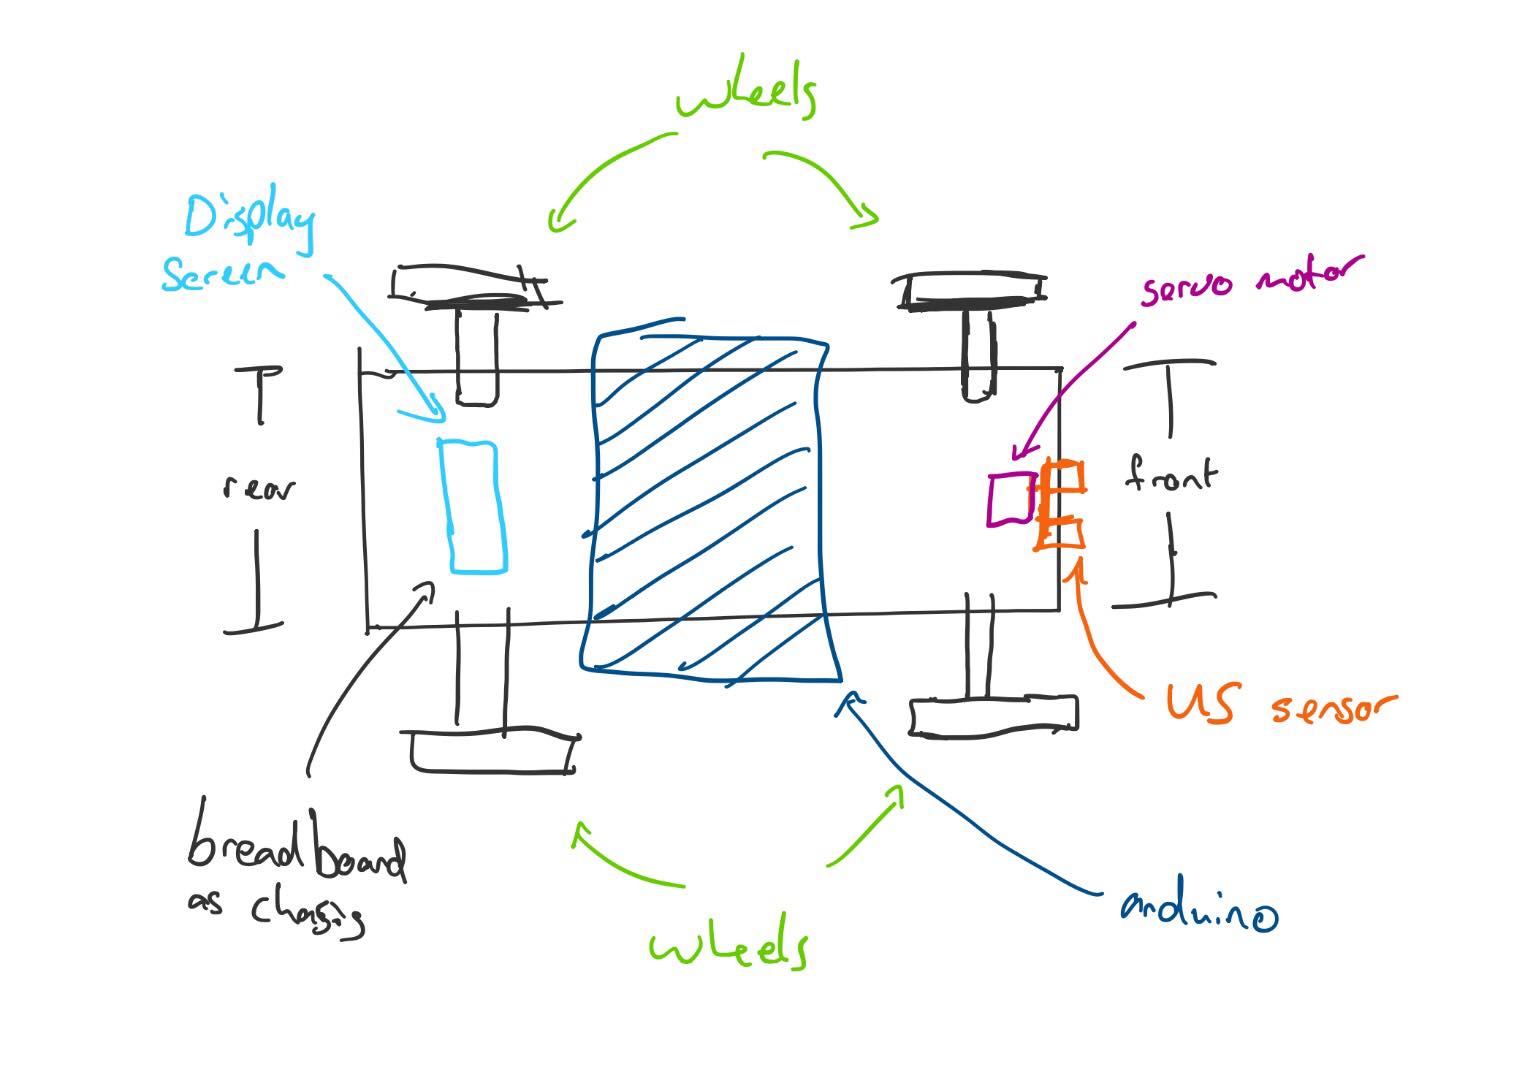 wheels
Display
screen
servo motor
rear
front
US sensor
breadboard
as chasis
arduino
wheels